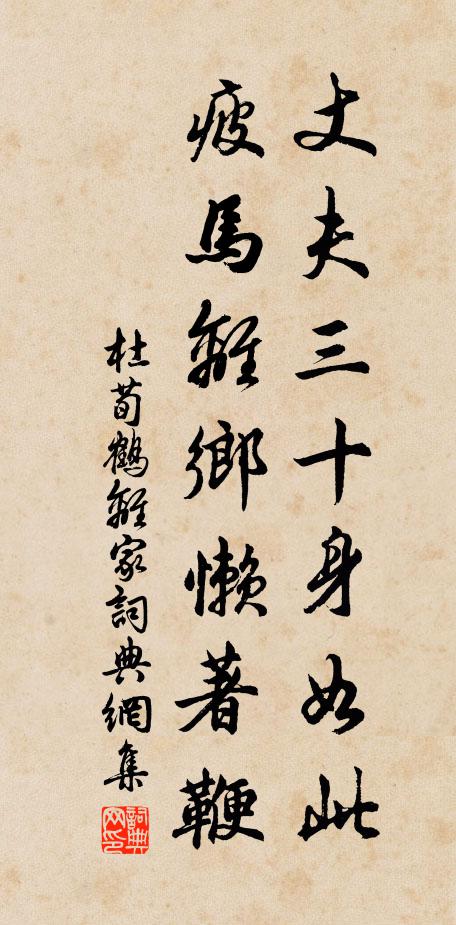 丈夫三十身如此
疲馬離鄉懶著鞭
杜荀鶴離家詞典網集
詞典網印